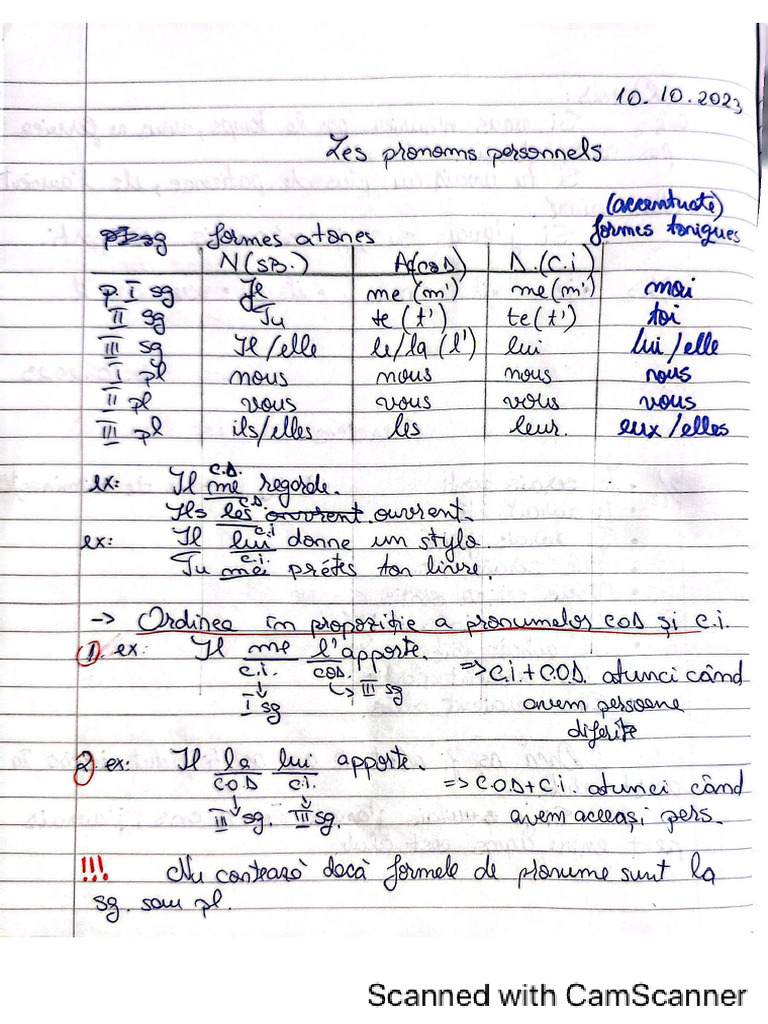 10.10.2023
Les pronoms personnels
(accentuate)
sg formes atones formes toniques
N(SB.) A(COD) D.(C.i)
p. I sg Je me (m') me (m') moi
II sg Tu te (t') te (t') toi
III sg Il/elle le/la (l') lui lui/elle
I pl nous nous nous nous
II pl vous vous vous vous
III pl ils/elles les leur. eux/elles
C.D.
ex: Il me regarde.
C.D.
Ils les ouvrent ouvrent.
C.i
ex: Il lui donne un stylo.
C.i.
Tu mei prétes ton livre.
-> Ordinea în propoziție a pronumelor COD și C.i.
1. ex: Il me l'apporte.
C.i. COD. => C.i.+C.O.D. atunci când
I sg III sg avem persoane
diferite
2) ex: Il la lui apporte.
COD C.i. => COD+C.i. atunci când
III sg. III sg. avem aceeași pers.
!!! Nu contează dacă formele de pronume sunt la
sg. sau pl.
Scanned with CamScanner